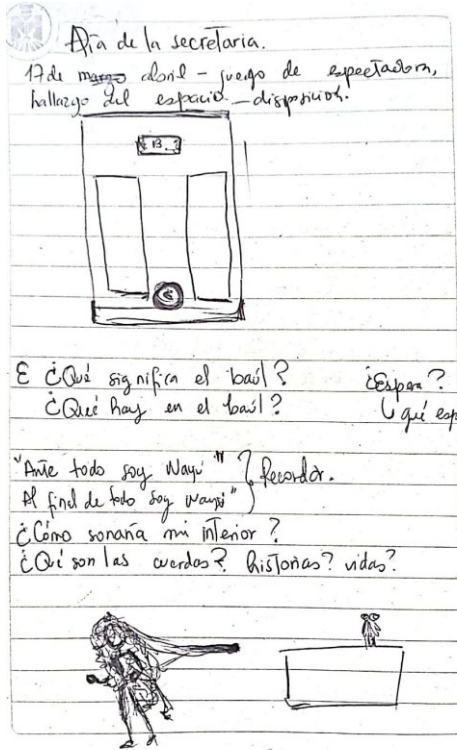 Día de la secretaria.
17 de marzo abril - juego de espectadora,
hallazgo del espacio - disposición.
B
E ¿Qué significa el baúl? ¿Espera?
¿Qué hay en el baúl? qué esp
"Ante todo soy Wayú" Recordar.
Al final de todo soy wayú"
¿Cómo sonaría mi interior?
¿Qué son las cuerdas? historias? vidas?